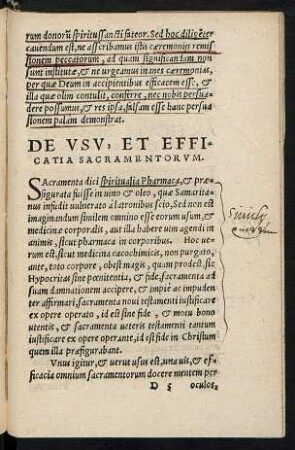 rum donorũ spiritussancti fateor. Sed hoc diligẽter
cauendum est, ne ascribamus istis cæremonijs remis
sionem peccatorum, ad quam significantam non
sunt institutæ, & ne urgeamus inanes cæremonias,
per quæ Deum in accipientibus efficacem esse, &
illa quæ olim contulit, conferre, nec nobis persua-
dere possumus, & res ipsa, falsam esse hanc persua-
sionem palam demonstrat.
DE VSV, ET EFFI-
CATIA SACRAMENTORVM.
Sacramenta dici spiritualia Pharmaca, & præ-
figurata fuisse in uino & oleo, quæ Samarita-
nus infudit uulnerato à latronibus scio, Sed non est
imaginandum similem omnino esse eorum usum, &
medicinæ corporalis, aut illa habere uim agendi in
animis, sicut pharmaca in corporibus. Hoc ue-
rum est, sicut medicina cacochimicis, non purgato,
ante, toto corpore, obest magis, quam prodest, sic
Hypocritis sine pœnitentia, & fide, sacramenta ad
suam damnationem accipere, & impie ac impuden
ter affirmari, sacramenta noui testamenti iustificare
ex opere operato, id est sine fide, & motu bono
utentis, & sacramenta ueteris testamenti tantum
iustificare ex opere operante, id est fide in Christum
quem illa præfigurabant.
Vnus igitur, & uerus usus est, una uis, & ef-
ficacia omnium sacramentorum docere mentem per
D 5 oculos,